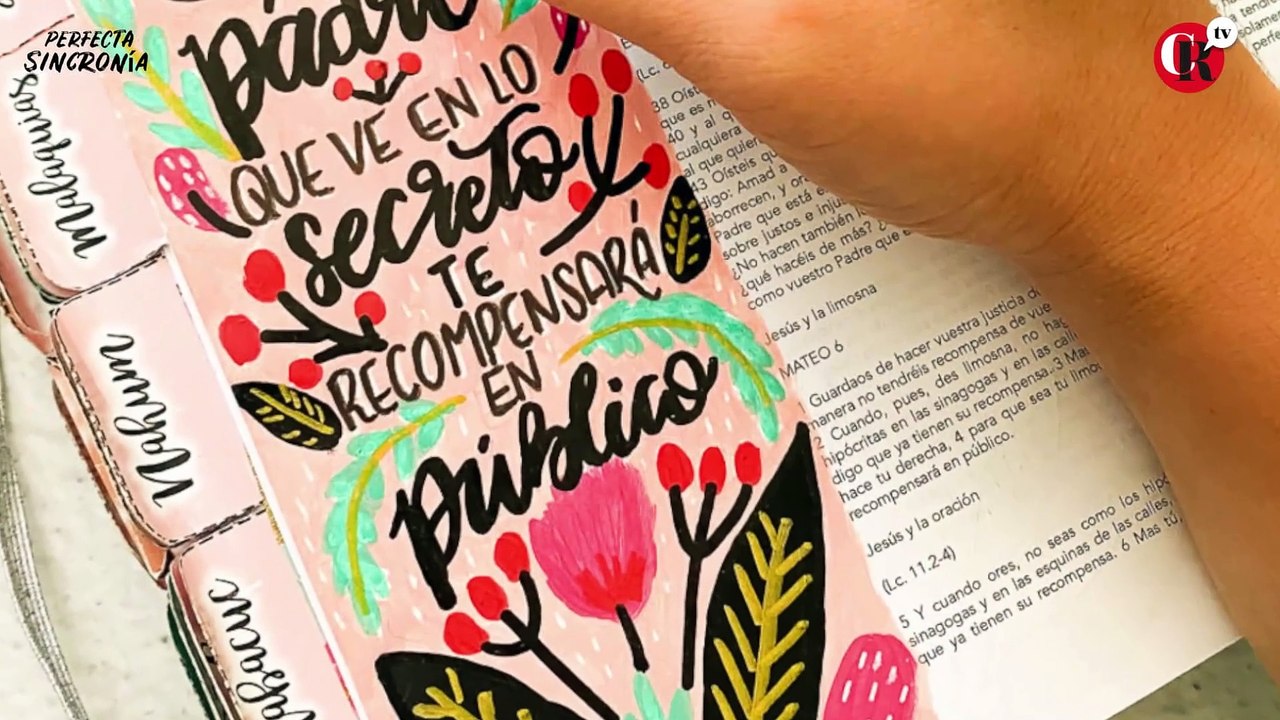 PERFECTA
SINCRONÍA
CK tv
Malaquías
Nahum
padre
QUE VE EN LO
secreto
TE
RECOMPENSARÁ
EN
público
(Lc.
38 Oíst
que es
40 y al q
cualquiera
al que quier
43 Oísteis qu
digo: Amad a
aborrecen, y or
Padre que está e
sobre justos e inju
¿No hacen también l
¿qué hacéis de más?
como vuestro Padre que e
Jesús y la limosna
MATEO 6
Guardaos de hacer vuestra justicia d
manera no tendréis recompensa de vue
2 Cuando, pues, des limosna, no hag
hipócritas en las sinagogas y en las calle
digo que ya tienen su recompensa. 3 Mas
hace tu derecha, 4 para que sea tu limo
recompensará en público.
Jesús y la oración
(Lc. 11.2-4)
5 Y cuando ores, no seas como los hipó
sinagogas y en las esquinas de las calles,
que ya tienen su recompensa. 6 Mas tú,